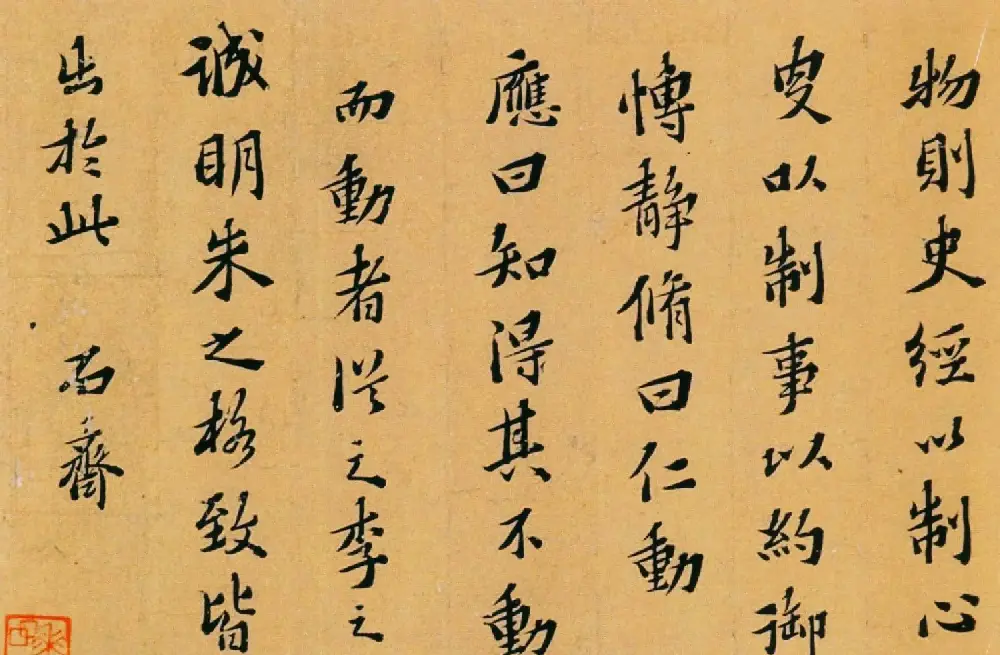 物則史經以制心
叟以制事以約御
博靜脩曰仁動
應曰知得其不動
而動者從之李之
誠明朱之格致皆
出於此
齋